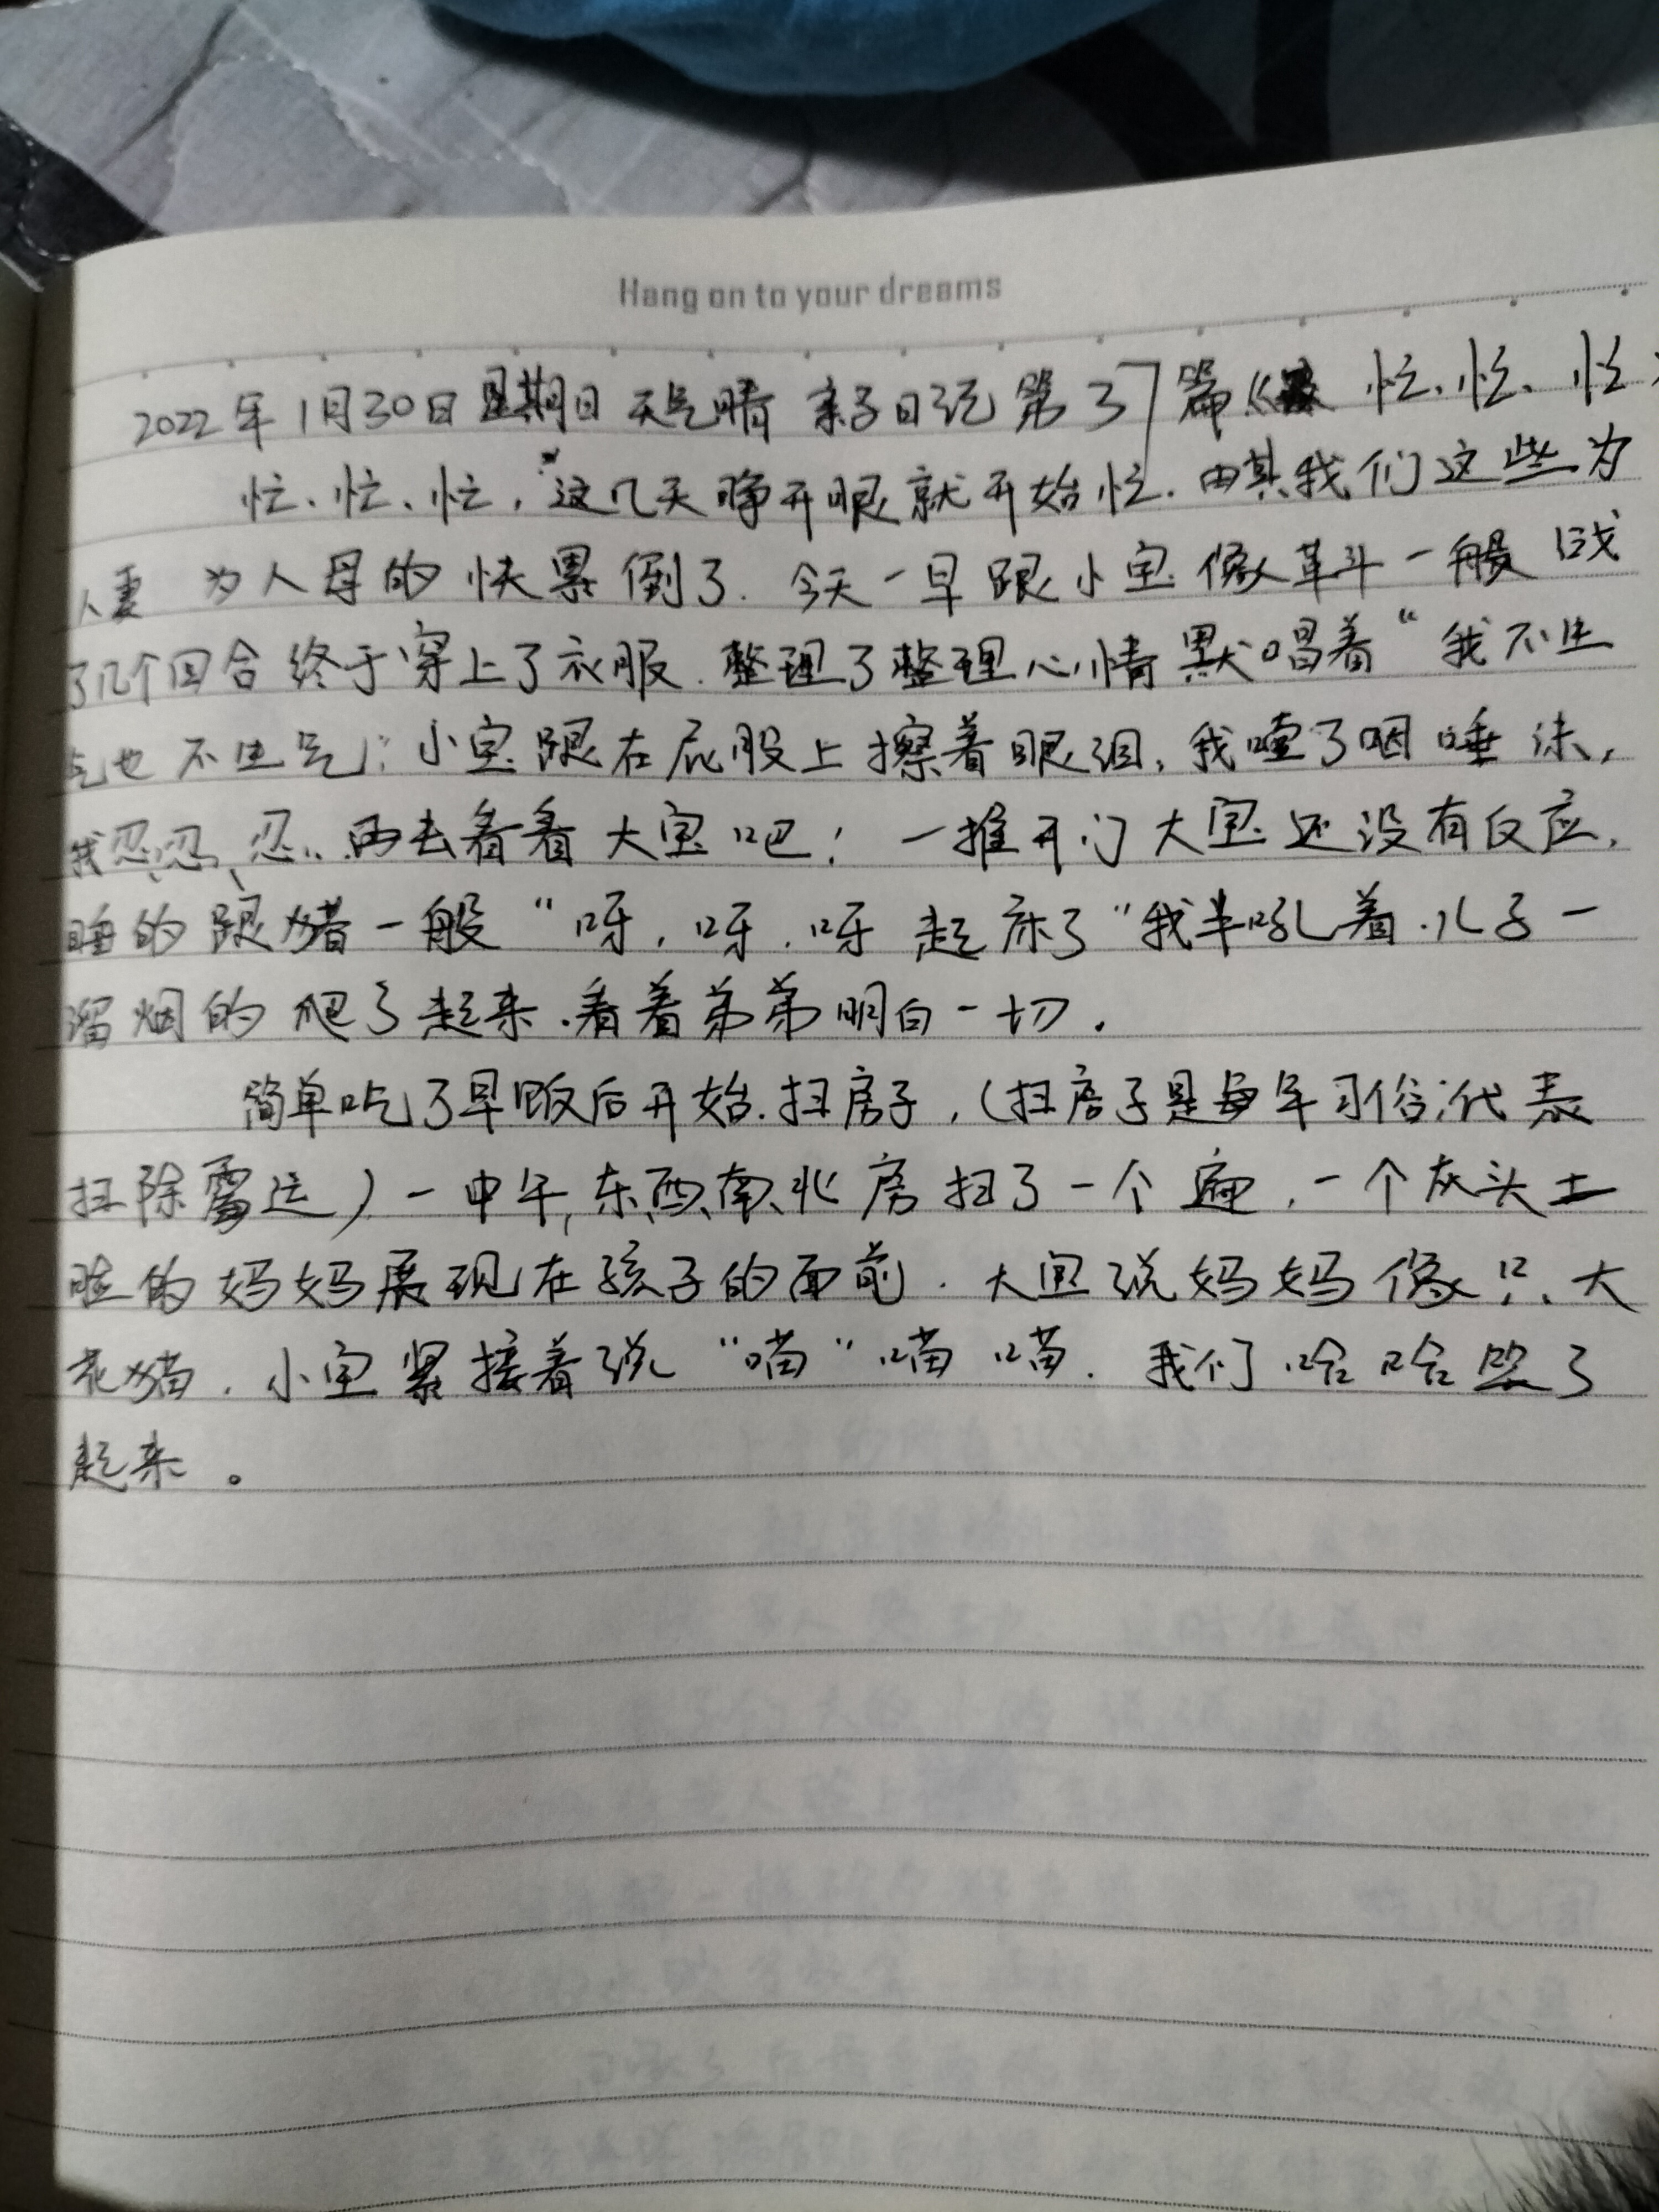 Hang on to your dreams
2022年1月30日星期日 天气晴 亲子日记 第37篇《 忙、忙、忙》
忙、忙、忙,这几天睁开眼就开始忙.由其我们这些为
人妻 为人母的快累倒了.今天一早跟小宝像革斗一般战
了几个回合终于穿上了衣服.整理了整理心情默唱着“我不生
气也不生气”.小宝跟在屁股上擦着眼泪,我咽唾沫,
我忍、忍、忍..再去看看大宝吧!一推开门大宝还没有反应,
睡的跟猪一般“呀,呀,呀起床了”我半吼着.儿子一
溜烟的爬了起来.看着弟弟明白一切.
简单吃了早饭后开始.扫房子,(扫房子是每年习俗;代表
扫除霉运)一中午,东、西、南、北房扫了一个遍,一个灰头土
脸的妈妈展现在孩子的面前.大宝说妈妈像只大
花猫.小宝紧接着说“喵”喵喵.我们哈哈笑了
起来。